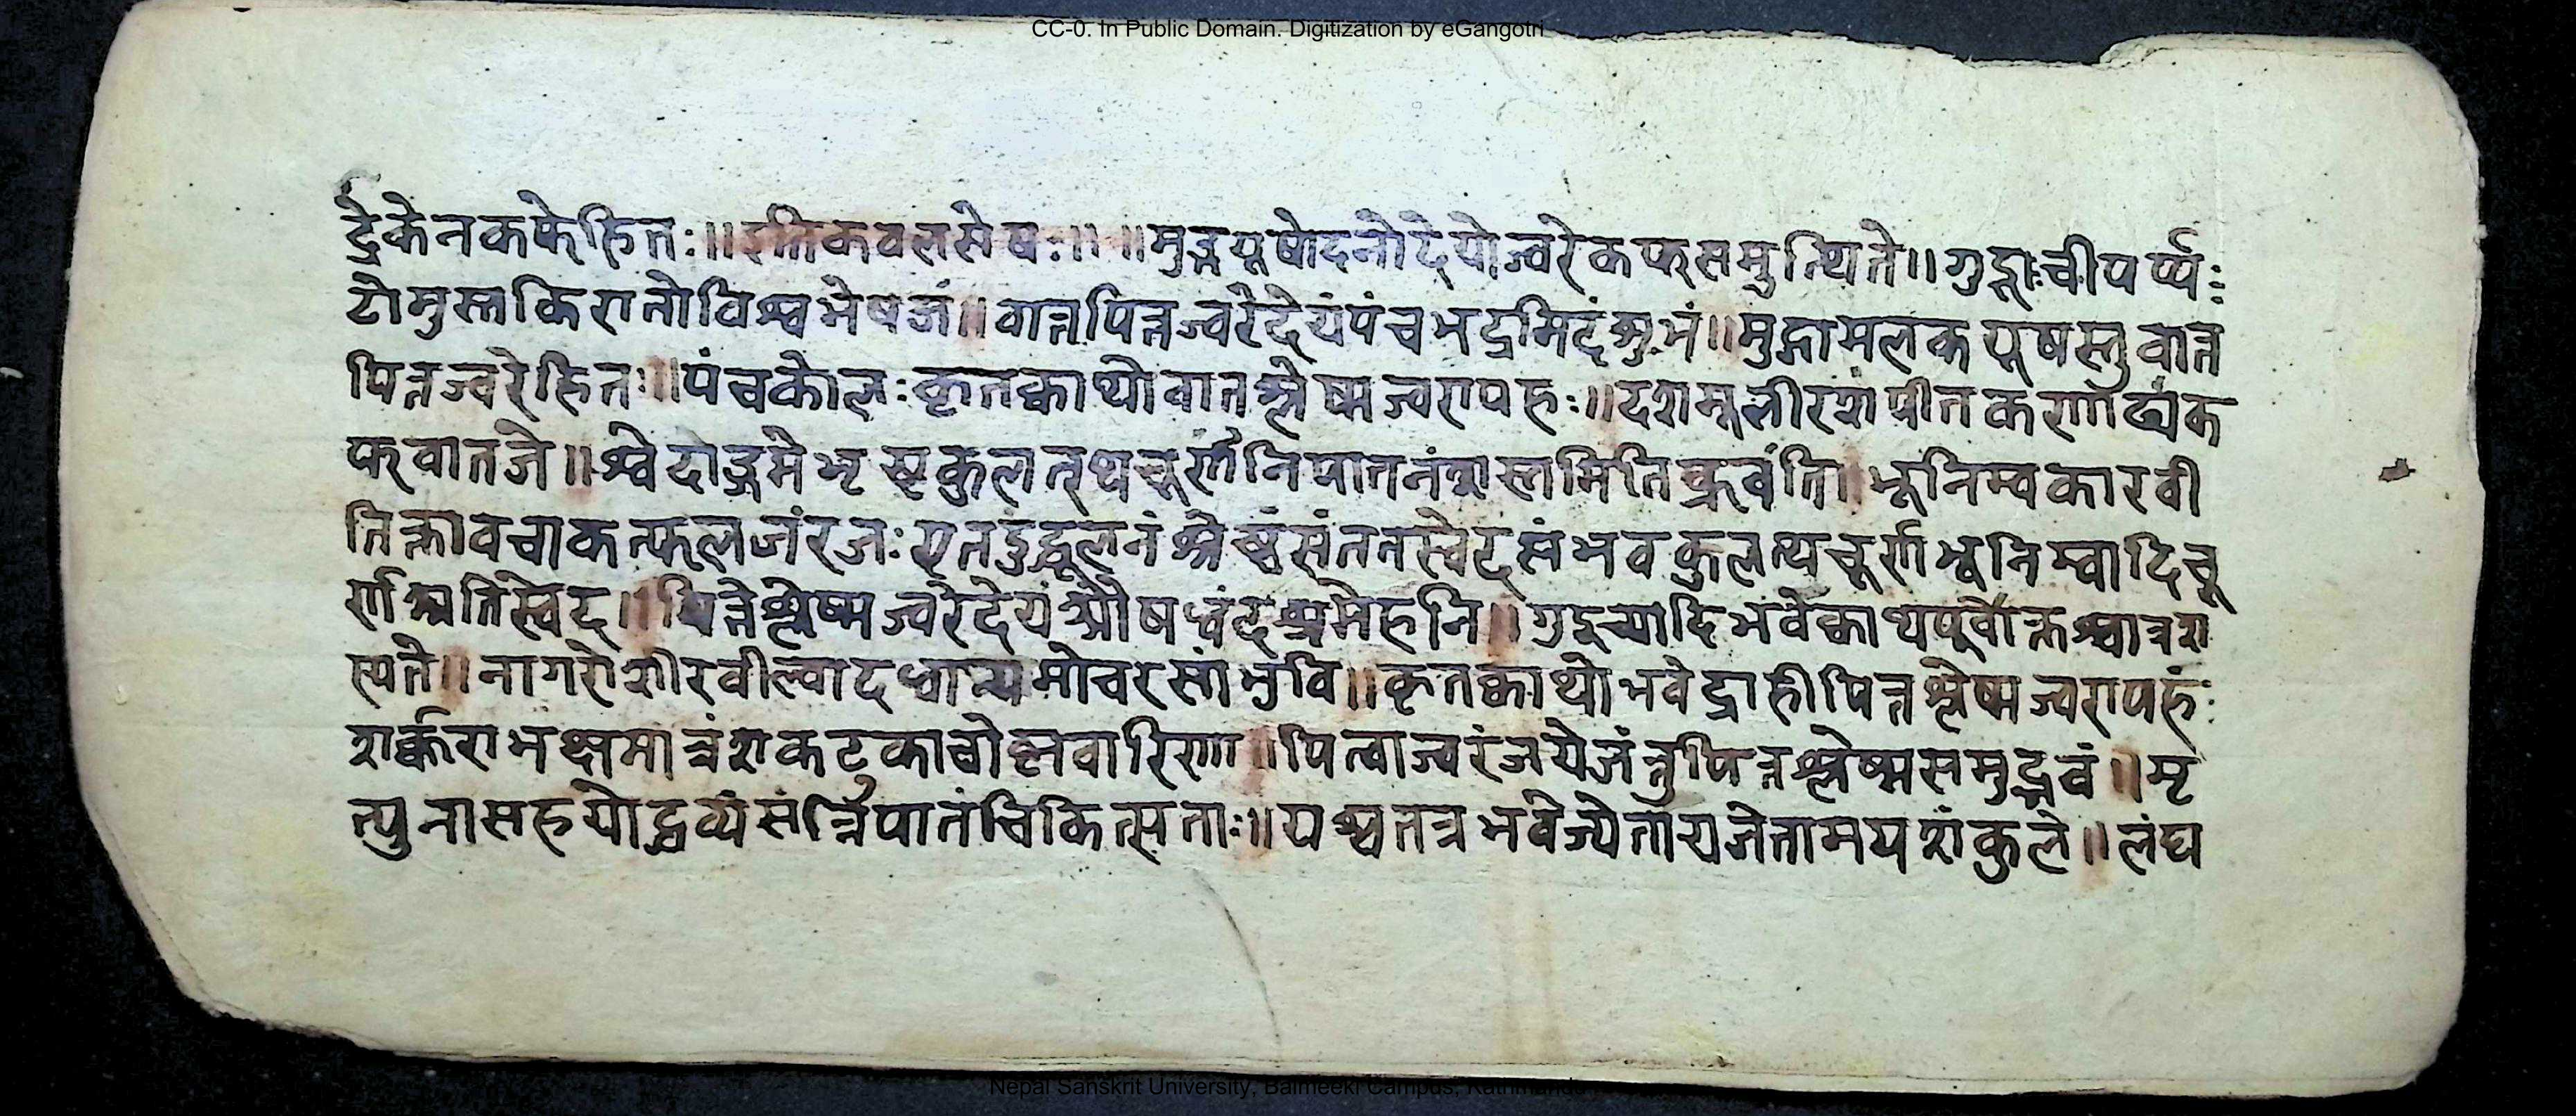 CC-0. In Public Domain. Digitization by eGangotri
द्रेकेनकफेहितः॥इतिकवलसेषः॥ ॥मुद्गयूषोदनोदेयोज्वरेकफसमुत्थिते॥गुडूाचीपर्प्प
टोमुस्तकिरातोविश्वभेषजं॥वातपित्तज्वरेदेयंपंचभद्रमिदंशुभं॥मुद्गामलकयूषस्तुवात
पित्तज्वरेहितः॥पंचकोलःकृतक्वाथोवातश्लेष्मज्वरापहः॥दशमूलीरशंपीतकणाढ्यंक
फवातजे॥श्वेदोद्गमेभृष्टकुलत्थचूर्णंनिपातनंशस्तमितिब्रूवंति॥भूनिम्वकारवी
तिक्तावचाकत्फलजंरजःएतदुद्धूलनंश्रेष्ठंसंततस्वेदसंभवकुलत्थचूर्णभूनिम्वादिचू
र्णअतिस्वेद॥पित्तेश्लेष्मज्वरेदेयंऔषधंदशमेहनि॥गुडुच्यादिभवेक्वाथपूर्वोक्तश्चात्रश
स्यते॥नागरोशीरवील्वाद धान्यमोचरसांभुवि॥कृतक्वाथोभवेद्राहीपित्तश्लेष्मज्वरापहः
शर्क्कराभक्षमात्रंशकटुकाचोष्णवारिणा॥पित्वाज्वरंजयेजंत्तुपित्तश्लेष्मसमुद्भवं॥मृ
त्युनासहयोद्धव्यंसंन्निपातंचिकित्सताः॥यश्चतत्रभवेज्येता लंघ
Nepal Sanskrit University, Balmeeki Campus,